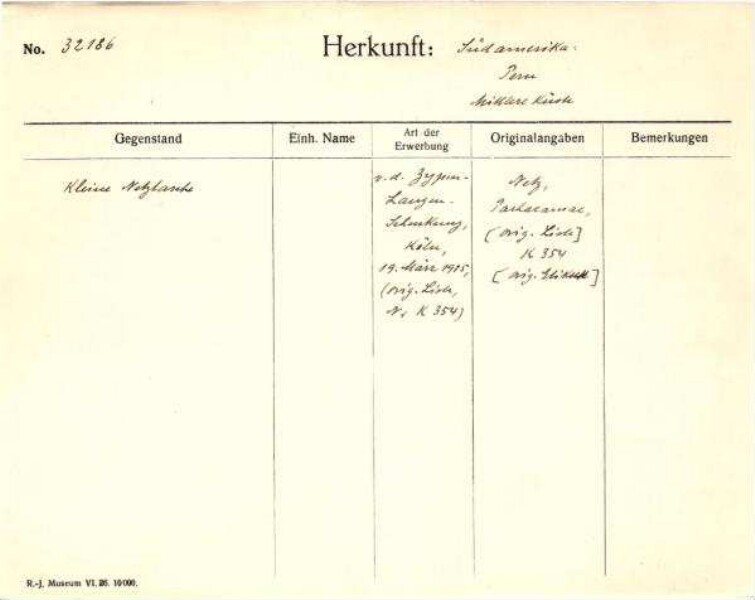 No. 32186
Herkunft: Südamerika.
Peru
Mittlere Küste
Gegenstand
Einh. Name
Art der Erwerbung
Originalangaben
Bemerkungen
Kleine Netztasche
v. d. Zypen-
Langen-
Schenkung,
Köln,
19. März 1925,
(orig. Liste,
N. K 354)
Netz,
Pachacamac,
(orig. Liste]
K 354
[orig. Etikett]
R.-J. Museum VI. 26. 10000.